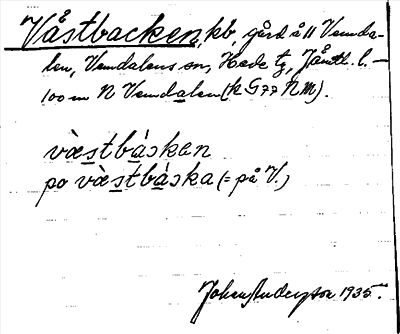 Våstbacken, kb, gård å 11 Vemda-
len, Vemdalens sn, Hede tg, Jämtl. l. —
100 m N Vemdalen (k G77 NM).
væstbàskan
po væstbàska (= på V.)
Johan Anderson 1935.